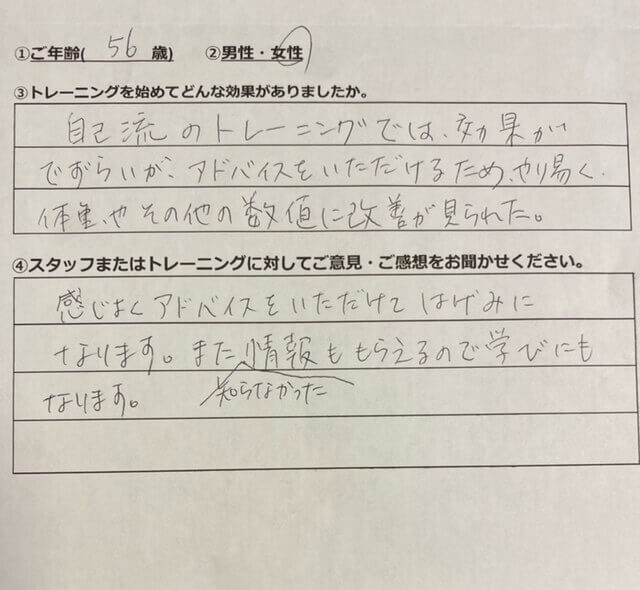 ①ご年齢( 56 歳) ②男性・女性
③トレーニングを始めてどんな効果がありましたか。
自己流のトレーニングでは、効果が
でずらいが、アドバイスをいただけるため、やり易く、
体重、やその他の数値に改善が見られた。
④スタッフまたはトレーニングに対してご意見・ご感想をお聞かせください。
感じよくアドバイスをいただけて はげみに
なります。また 情報も もらえるので 学びにも
なります。 知らなかった